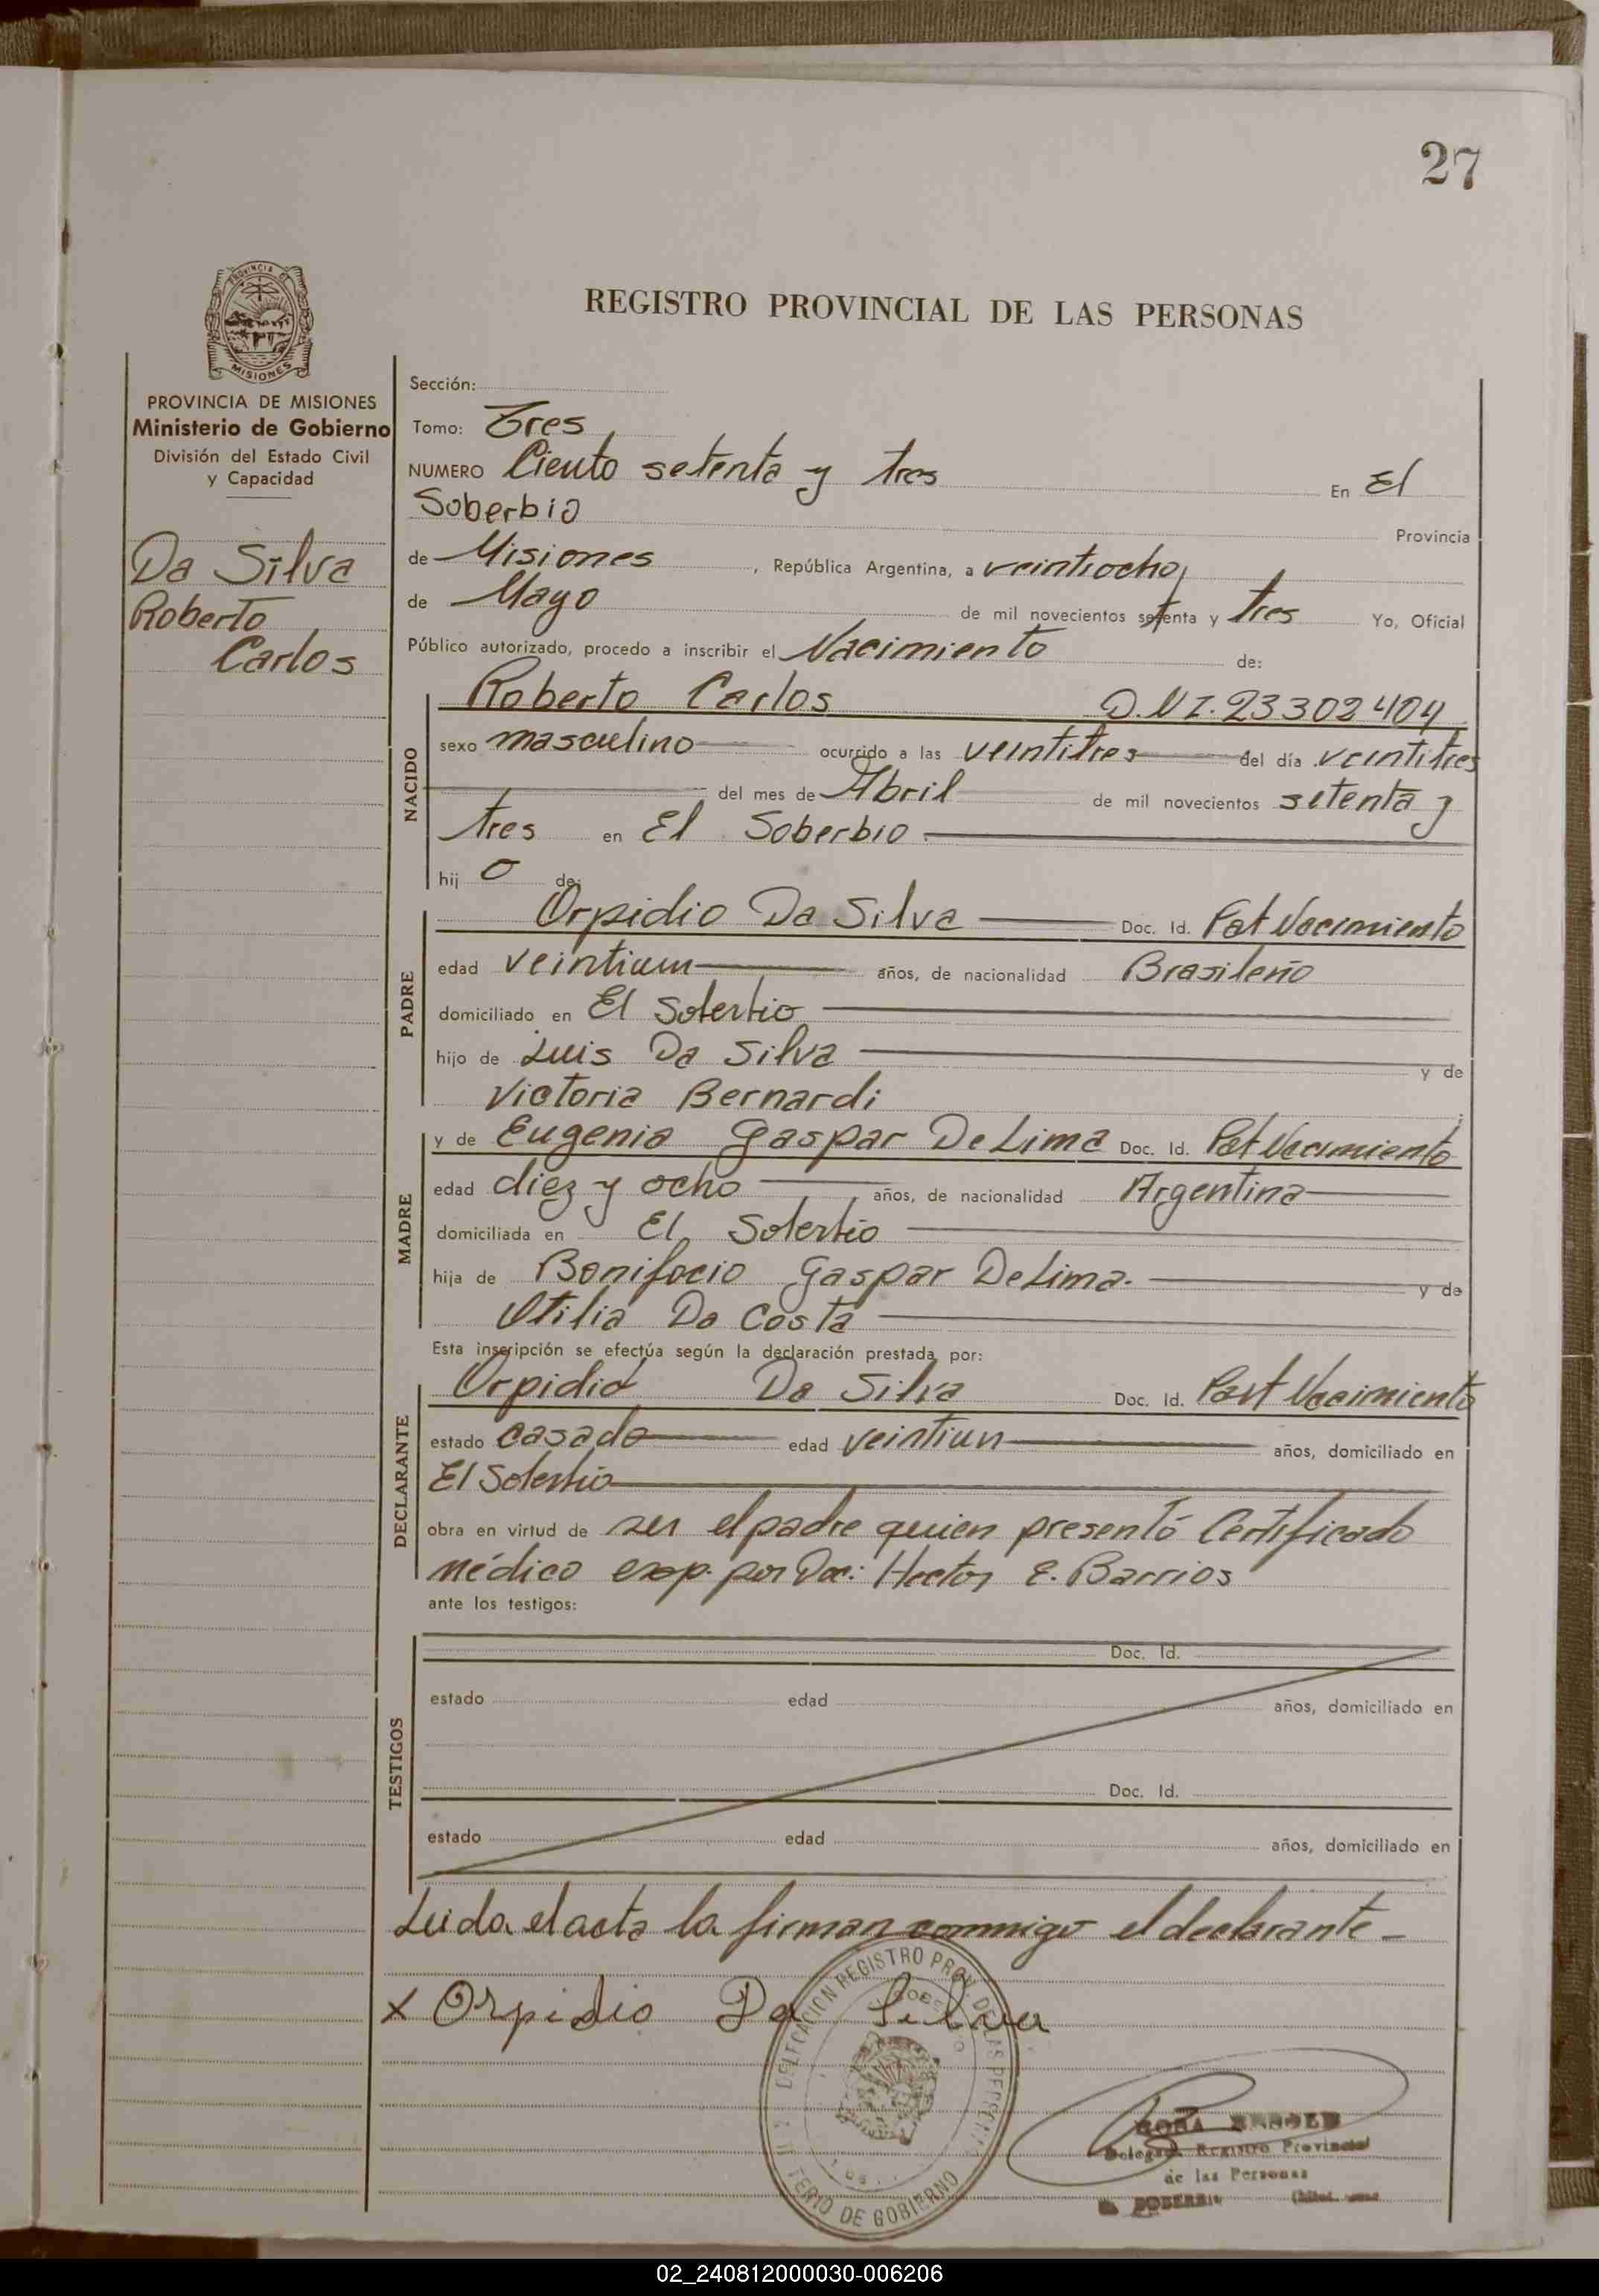 27
PROVINCIA DE
MISIONES
REGISTRO PROVINCIAL DE LAS PERSONAS
PROVINCIA DE MISIONES
Ministerio de Gobierno
División del Estado Civil
y Capacidad
Da Silva
Roberto
Carlos
Sección:
Tomo: Tres
NUMERO Ciento setenta y tres En El
Soberbio Provincia
de Misiones, República Argentina, a veintiocho
de Mayo de mil novecientos setenta y tres Yo, Oficial
Público autorizado, procedo a inscribir el Nacimiento de:
Roberto Carlos D.N.I. 23302404
NACIDO
sexo masculino ocurrido a las veintitres del día veintitres
del mes de Abril de mil novecientos setenta y
tres en El Soberbio
hij o de:
PADRE
Orpidio Da Silva Doc. Id. Pat Nacimiento
edad veintiun años, de nacionalidad Brasileño
domiciliado en El Soberbio
hijo de Luis Da Silva y de
Victoria Bernardi
MADRE
y de Eugenia Gaspar De Lima Doc. Id. Pat Nacimiento
edad diez y ocho años, de nacionalidad Argentina
domiciliada en El Soberbio
hija de Bonifacio Gaspar De Lima. y de
Otilia Da Costa
Esta inscripción se efectúa según la declaración prestada por:
DECLARANTE
Orpidio Da Silva Doc. Id. Part Nacimiento
estado casado edad veintiun años, domiciliado en
El Soberbio
obra en virtud de ser el padre quien presentó Certificado
Médico exp. por Doc: Hector E. Barrios
ante los testigos:
TESTIGOS
Doc. Id.
estado edad años, domiciliado en
Doc. Id.
estado edad años, domiciliado en
Leida el acta la firman conmigo el declarante -
x Orpidio Da Silva
DELEGACION REGISTRO PROV. DE LAS PERSONAS
TERIO DE GOBIERNO
ROSA
Registro Provincial
de las Personas
02_240812000030-006206